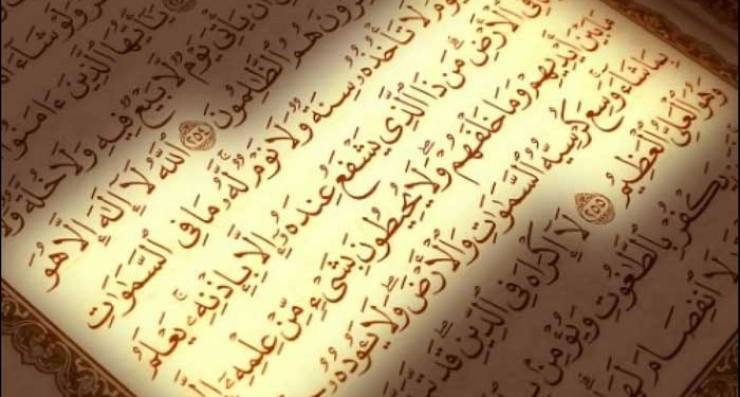 وَلَوْ شَآءَ
يَٰٓأَيُّهَا ٱلَّذِينَ ءَامَنُوٓا۟
أَن يَأْتِىَ يَوْمٌ لَّا بَيْعٌ فِيهِ وَلَا خُلَّةٌ وَلَا
هُمُ ٱلظَّٰلِمُونَ ٢٥٤ ٱللَّهُ لَآ إِلَٰهَ إِلَّا هُوَ
لَا تَأْخُذُهُۥ سِنَةٌ وَلَا نَوْمٌ لَّهُۥ مَا فِى ٱلسَّمَٰوَٰتِ
فِى ٱلْأَرْضِ مَن ذَا ٱلَّذِى يَشْفَعُ عِندَهُۥٓ إِلَّا بِإِذْنِهِۦ يَعْلَمُ
مَا بَيْنَ أَيْدِيهِمْ وَمَا خَلْفَهُمْ وَلَا يُحِيطُونَ بِشَىْءٍ مِّنْ عِلْمِهِۦٓ
بِمَا شَآءَ وَسِعَ كُرْسِيُّهُ ٱلسَّمَٰوَٰتِ وَٱلْأَرْضَ وَلَا يَـُٔودُهُۥ
وَهُوَ ٱلْعَلِىُّ ٱلْعَظِيمُ ٢٥٥ لَآ إِكْرَاهَ فِى ٱلدِّينِ قَد
يَكْفُرْ بِٱلطَّٰغُوتِ وَيُؤْمِنۢ
لَا ٱنفِصَامَ لَهَا